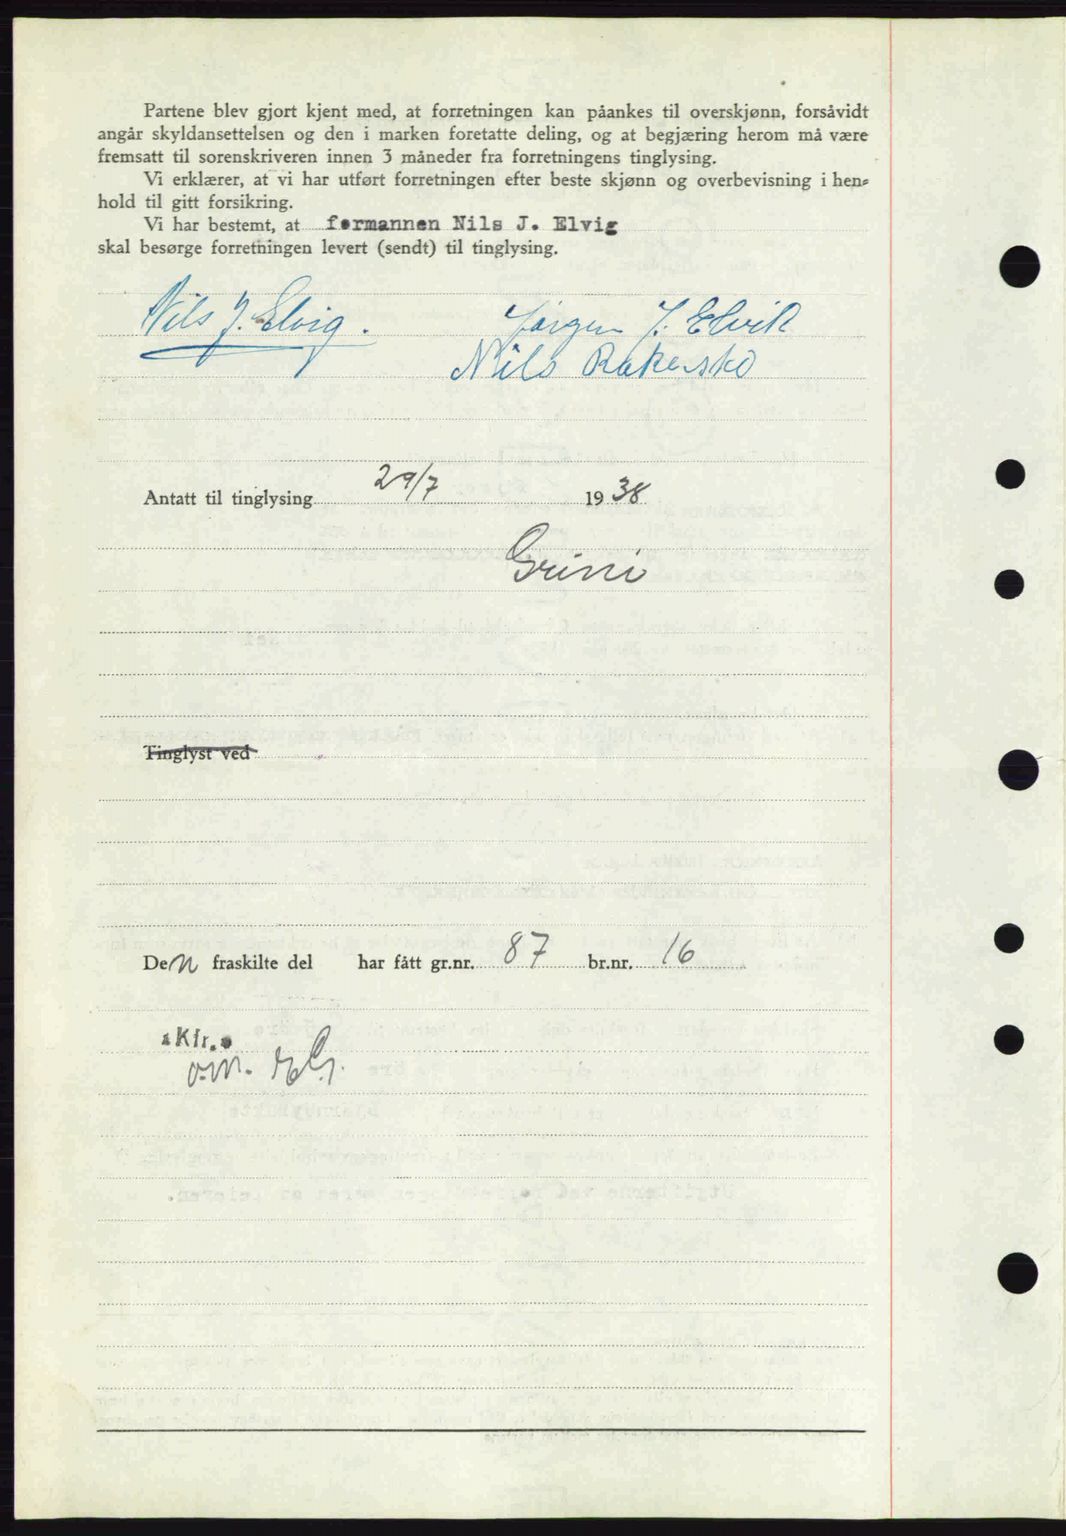 Partene blev gjort kjent med, at forretningen kan påankes til overskjønn, forsåvidt
angår skyldansettelsen og den i marken foretatte deling, og at begjæring herom må være
fremsatt til sorenskriveren innen 3 måneder fra forretningens tinglysing.
Vi erklærer, at vi har utført forretningen efter beste skjønn og overbevisning i hen-
hold til gitt forsikring.
Vi har bestemt, at formannen Nils J. Elvig
skal besørge forretningen levert (sendt) til tinglysing.
Nils J. Elvig. Jørgen J. Elvik
Nils Rakenskö
Antatt til tinglysing 29/7 1938
Grini
Tinglyst ved
Den fraskilte del har fått gr.nr. 87 br.nr. 16
Kfr.